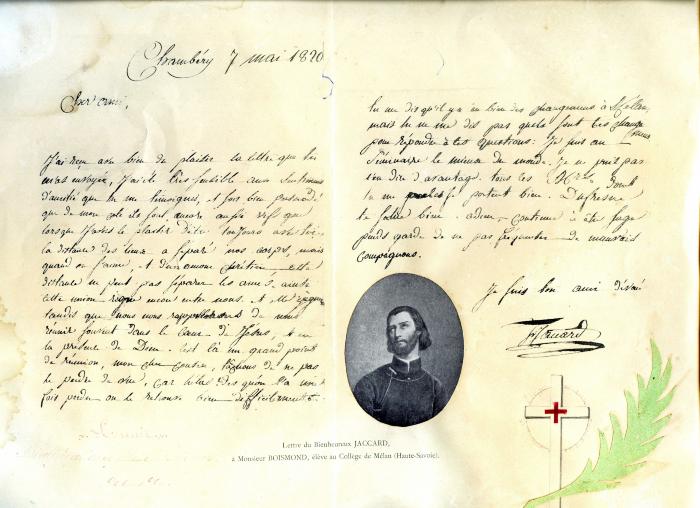 Chambéry 7 mai 1820
Cher ami,
J'ai reçu avec bien de plaisir la lettre que tu
m'as envoyée, J'ai été très sensible aux sentimens
d'amitié que tu me témoignes, et sois bien persuadé
que de mon côté ils sont encore aussi vifs que
lorsque J'avais le plaisir d'être toujours avec toi.
la distance des lieux a séparé nos corps, mais
quand on s'aime, et d'un amour chrétien, cette
distance ne peut pas séparer les ames. aussi
cette union règne entre nous. et
tandis que nous nous rappellerons de nous
réunir souvent dans le Cœur de Jésus, et en
la présence de Dieu. c'est là un grand point
de réunion, mon cher, tâchons de ne pas
le perdre de vue, Car hélas dès qu'on l'a une
fois perdu on le retrouve bien difficilement.
tu me dis qu'il y a eu bien des changemens à Mélan,
mais tu ne me dis pas quels sont ces changemens
pour répondre à tes questions: Je suis au
Séminaire le mieux du monde. Je ne puis pas
t'en dire d'avantage. tous les dont
tu me parles se portent bien. Dufresne
te salue bien. adieu, continue à être sage
prends garde de ne pas fréquenter de mauvais
Compagnons.
Je suis ton ami dévoué
Jaccard
Lettre du Bienheureux JACCARD,
à Monsieur BOISMOND, élève au Collège de Mélan (Haute-Savoie).